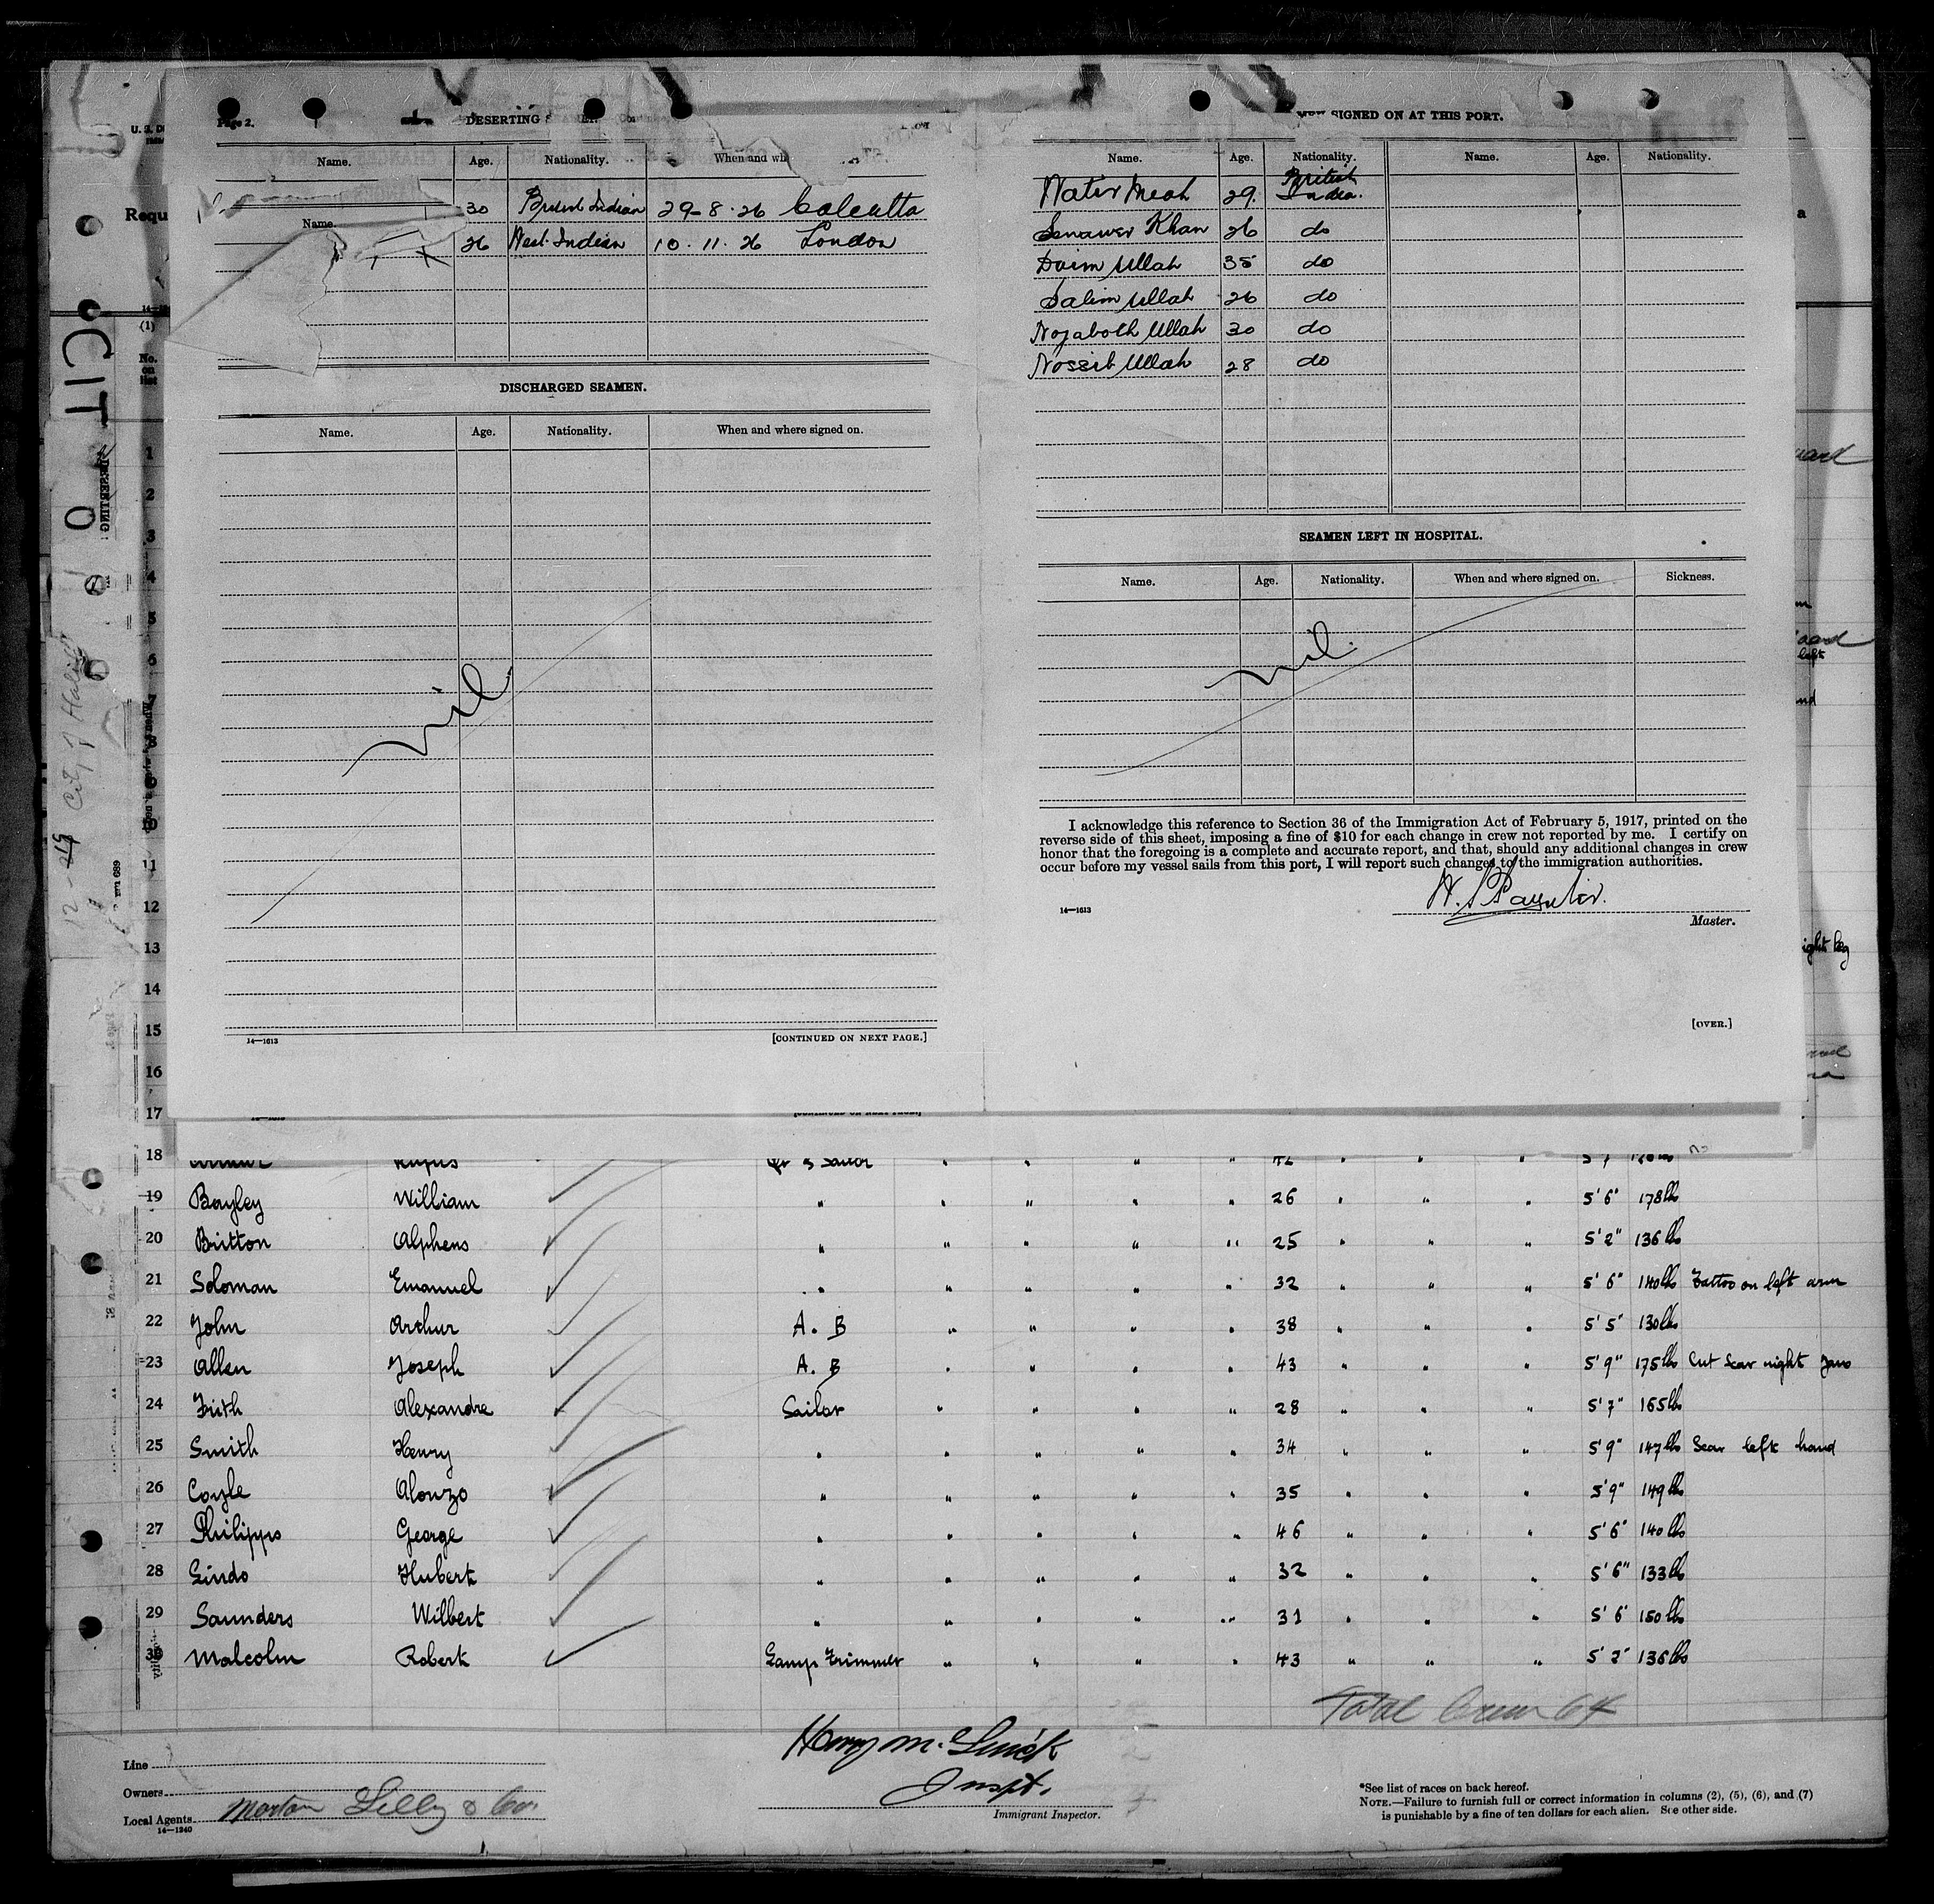 Page 2.
DESERTING
Name. Age. Nationality. When and wh
30 British Indian 29-8-26 Calcutta
Name.
26 West Indian 10.11.26 London
DISCHARGED SEAMEN.
Name. Age. Nationality. When and where signed on.
nil
14—1613 [CONTINUED ON NEXT PAGE.]
SIGNED ON AT THIS PORT.
Name. Age. Nationality. Name. Age. Nationality.
Natir Meah 29. British India.
Sonawer Khan 26 do
Daim Ullah 35 do
Salim Ullah 26 do
Nojaboth Ullah 30 do
Nossib Ullah 28 do
SEAMEN LEFT IN HOSPITAL.
Name. Age. Nationality. When and where signed on. Sickness.
nil.
I acknowledge this reference to Section 36 of the Immigration Act of February 5, 1917, printed on the
reverse side of this sheet, imposing a fine of $10 for each change in crew not reported by me. I certify on
honor that the foregoing is a complete and accurate report, and that, should any additional changes in crew
occur before my vessel sails from this port, I will report such changes to the immigration authorities.
14—1613
Master.
[OVER.]
U. S. D
Requ
(1)
No.
on
list
CIT O
1
2
3
4
5
6
7
8
9
10
11
12
13
14
15
16
17
18 Sailor
19 Bayley William " " " " " 26 " " " 5'6" 178lbs
20 Britton Alphens " " " " " 25 " " " 5'2" 136lbs
21 Soloman Emanuel " " " " " 32 " " " 5'6" 140lbs Tattoo on left arm
22 John Arthur A. B " " " " 38 " " " 5'5" 130lbs
23 Allen Joseph A. B " " " " 43 " " " 5'9" 175lbs Cut Scar right Jaw
24 Frith Alexandre Sailor " " " " 28 " " " 5'7" 165lbs
25 Smith Henry " " " " " 34 " " " 5'9" 147lbs Scar left hand
26 Coyle Alonzo " " " " " 35 " " " 5'9" 149lbs
27 Philipps George " " " " " 46 " " " 5'6" 140lbs
28 Lindo Hubert " " " " " 32 " " " 5'6" 133lbs
29 Saunders Wilbert " " " " " 31 " " " 5'6" 150lbs
30 Malcolm Robert Lamp Trimmer " " " " 43 " " " 5'2" 136lbs
Total Crew 64
Line
Owners
Local Agents Morton Lilly & Co.
14—1240
Inspt.
Immigrant Inspector.
*See list of races on back hereof.
NOTE.—Failure to furnish full or correct information in columns (2), (5), (6), and (7)
is punishable by a fine of ten dollars for each alien. See other side.